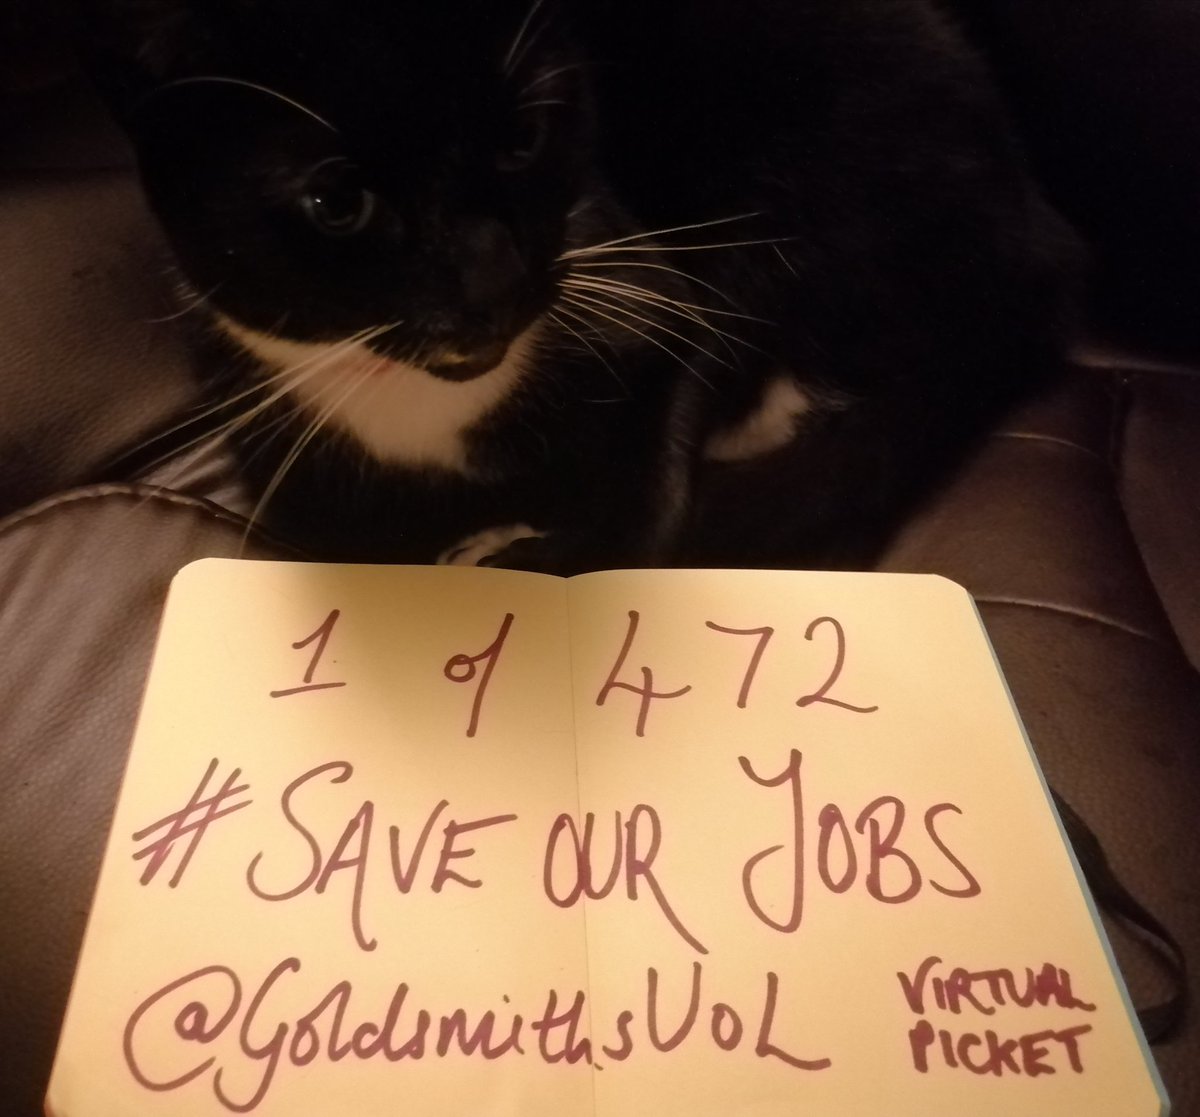 1 of 472
# SAVE OUR JOBS
@GoldsmithsUoL
VIRTUAL
PICKET